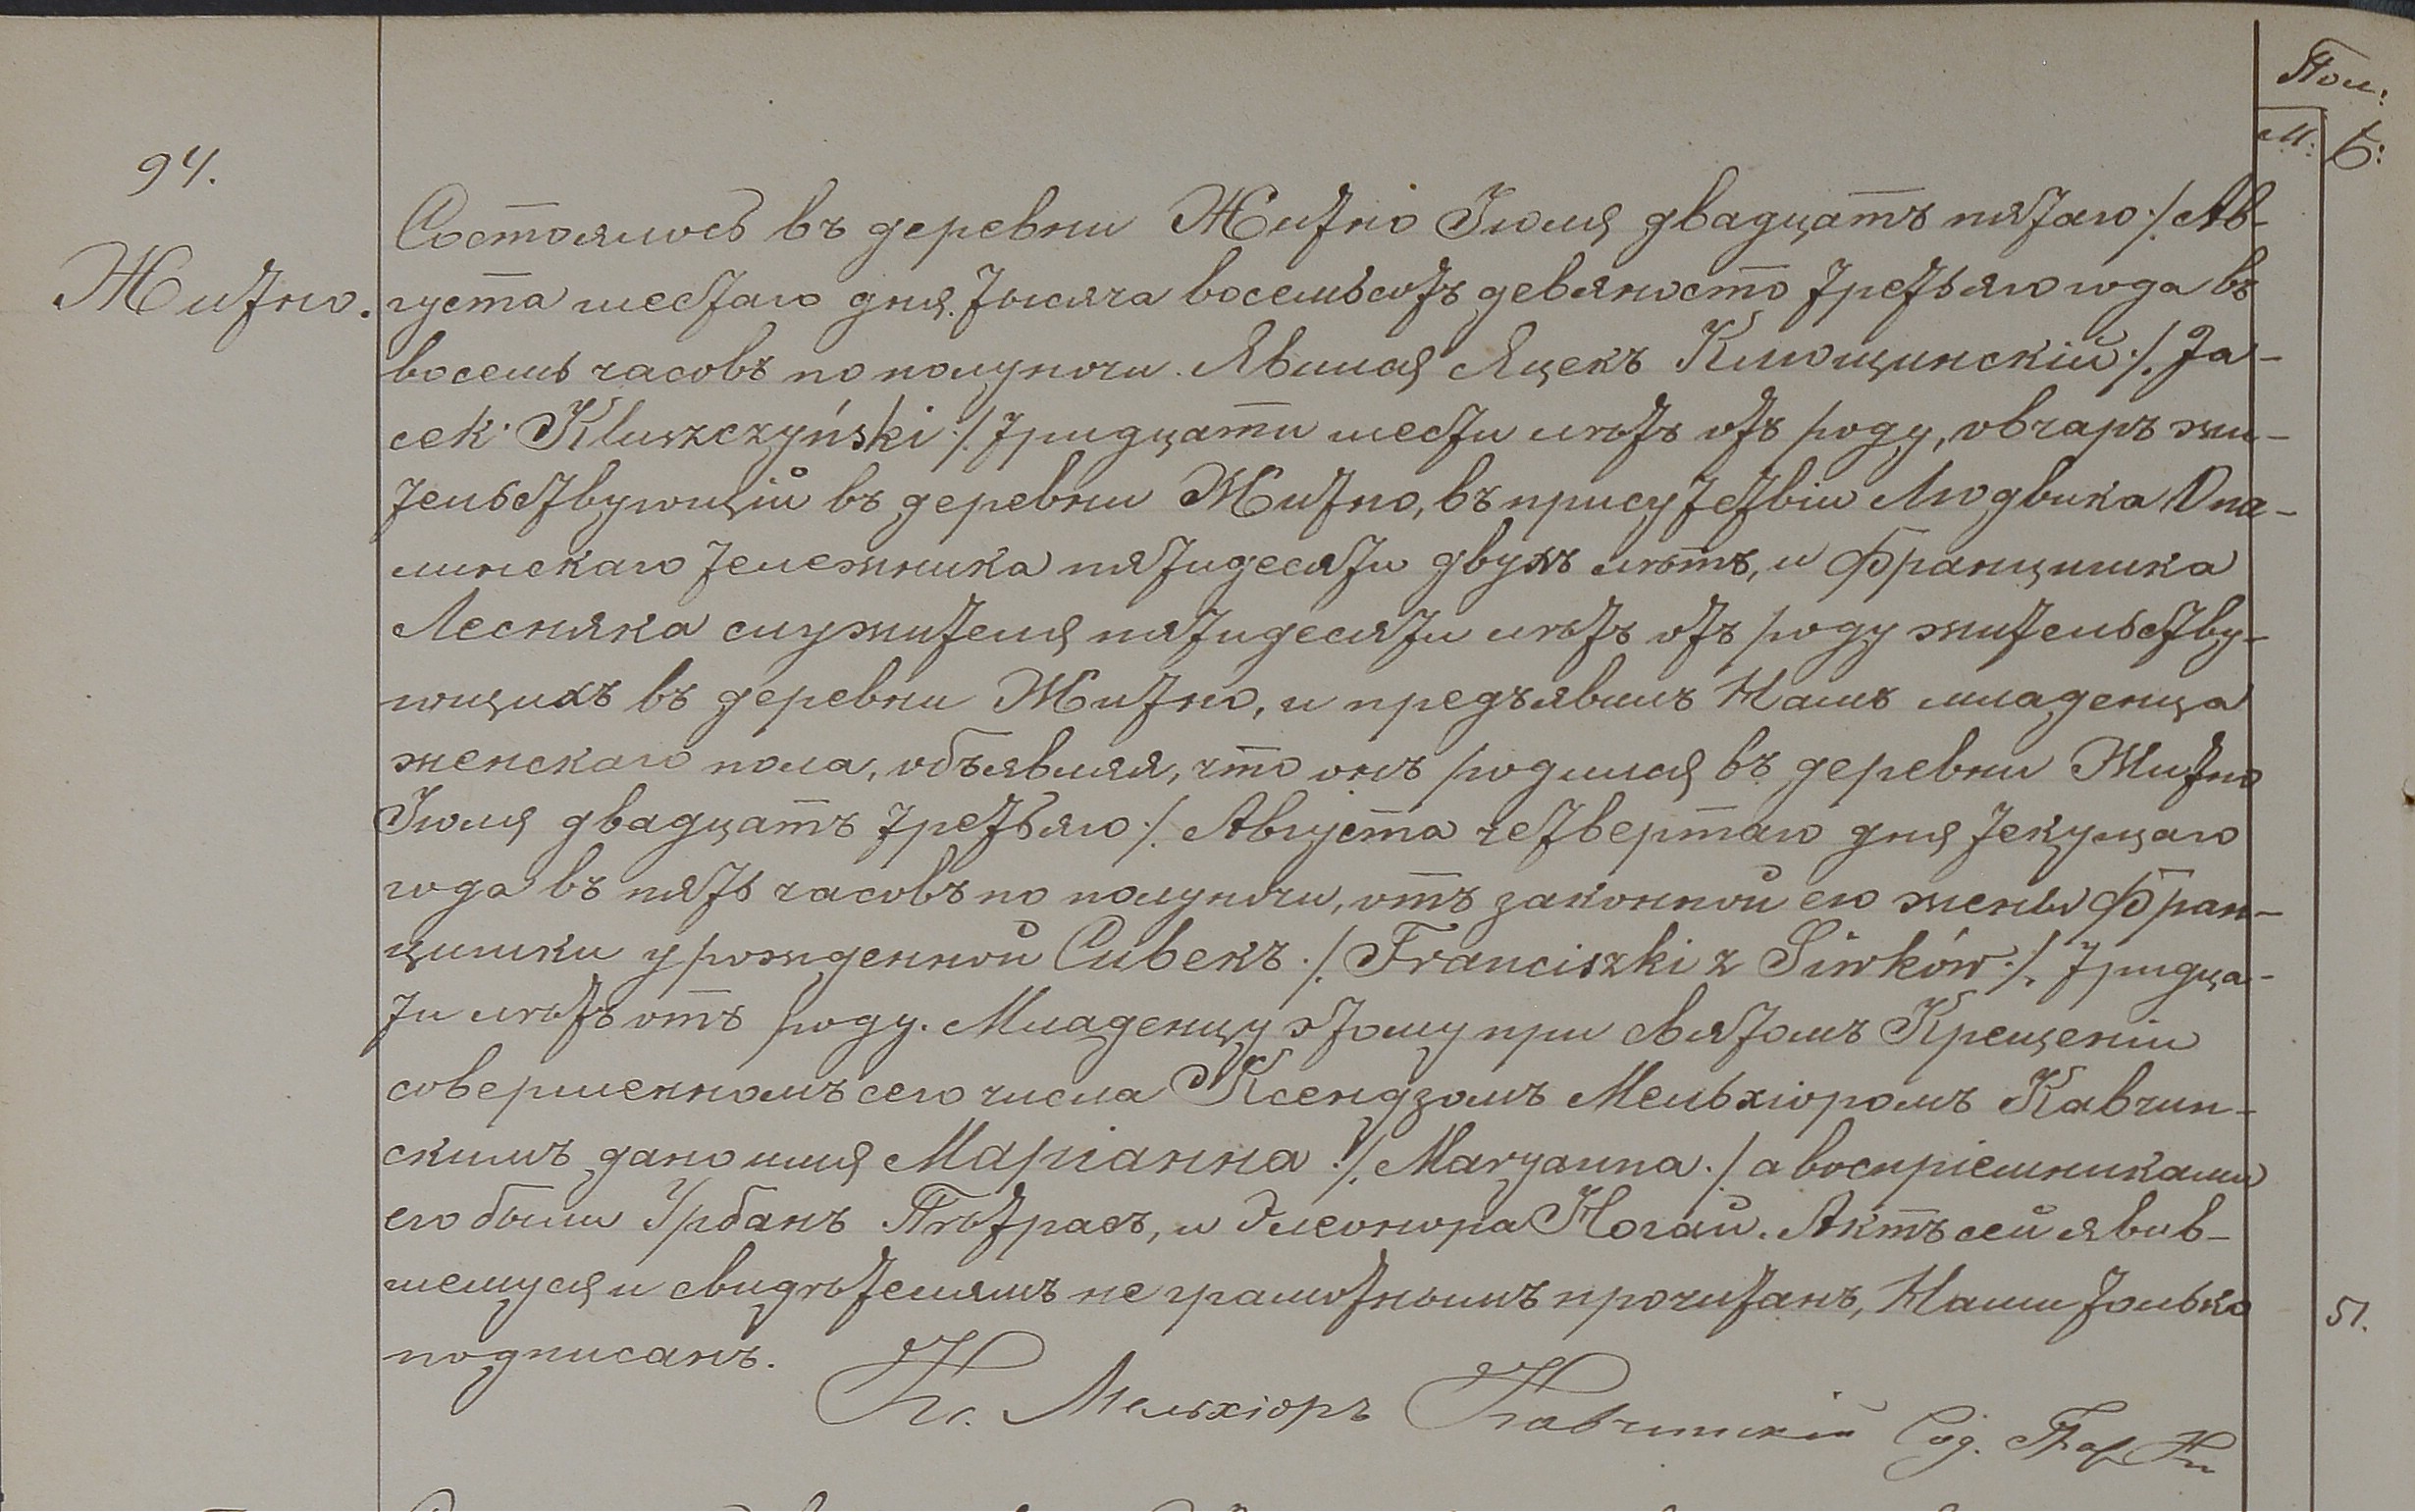 Пол:
М: Ж:
94.
Житно.
Состоялось въ деревни Житно Іюля двадцать пятаго ./. Ав-
густа шестаго дня тысяча восемьсотъ девяносто третьяго года въ
восемь часовъ по полуночи. Явился Яцекъ Клющинскій ./. Ja-
cek Kluszczyński ./. тридцати шести лѣтъ отъ роду, овчаръ жи-
тельствующій въ деревни Житно, въ присутствіи Людвика Опа-
линскаго тележника пятидесяти двухъ лѣтъ, и Францишка
Лесняка служителя пятидесяти лѣтъ отъ роду жительству-
ющихъ въ деревни Житно, и предъявилъ Намъ младенца
женскаго пола, объявляя, что онъ родился въ деревни Житно
Іюля двадцать третьяго ./. Августа четвертаго дня текущаго
года въ пять часовъ по полуночи, отъ законной его жены Фран-
цишки урожденной Сивекъ ./. Franciszki z Siwków ./. тридца-
ти лѣтъ отъ роду. Младенцу этому при святомъ Крещеніи
совершенномъ сего числа Ксендзомъ Мельхіоромъ Кавчин-
скимъ дано имя Маріанна ./. Maryanna ./. а воспріемниками
его были Урбанъ Пѣтрасъ, и Элеонора Ногай. Актъ сей явив-
шемуся и свидѣтелямъ не грамотнымъ прочитанъ, Нами только
подписанъ.
51.
Кс. Мельхіоръ Кавчинскій Сод. Пар.